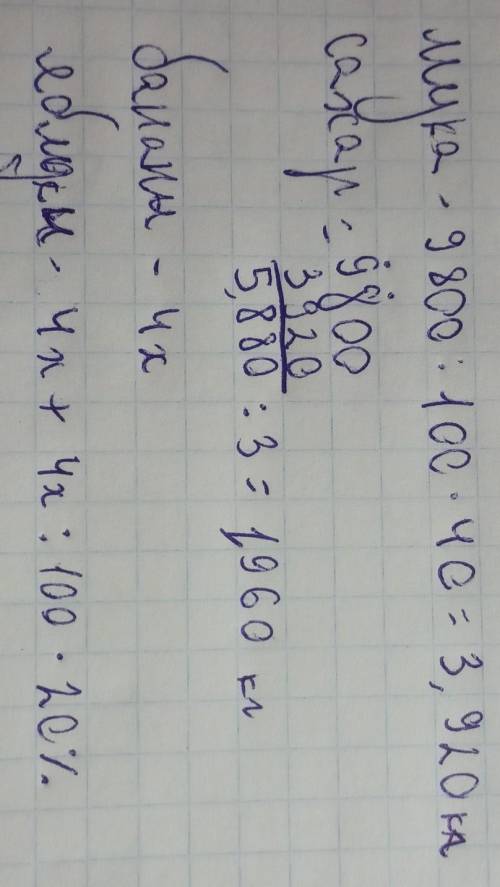 мука - 9800 : 100 · 40 = 3,920 кл
сахар - 9800
3920
5,880 : 3 = 1,960 кл
бананы - 4х
яблоки - 4х + 4х : 100 · 20%.